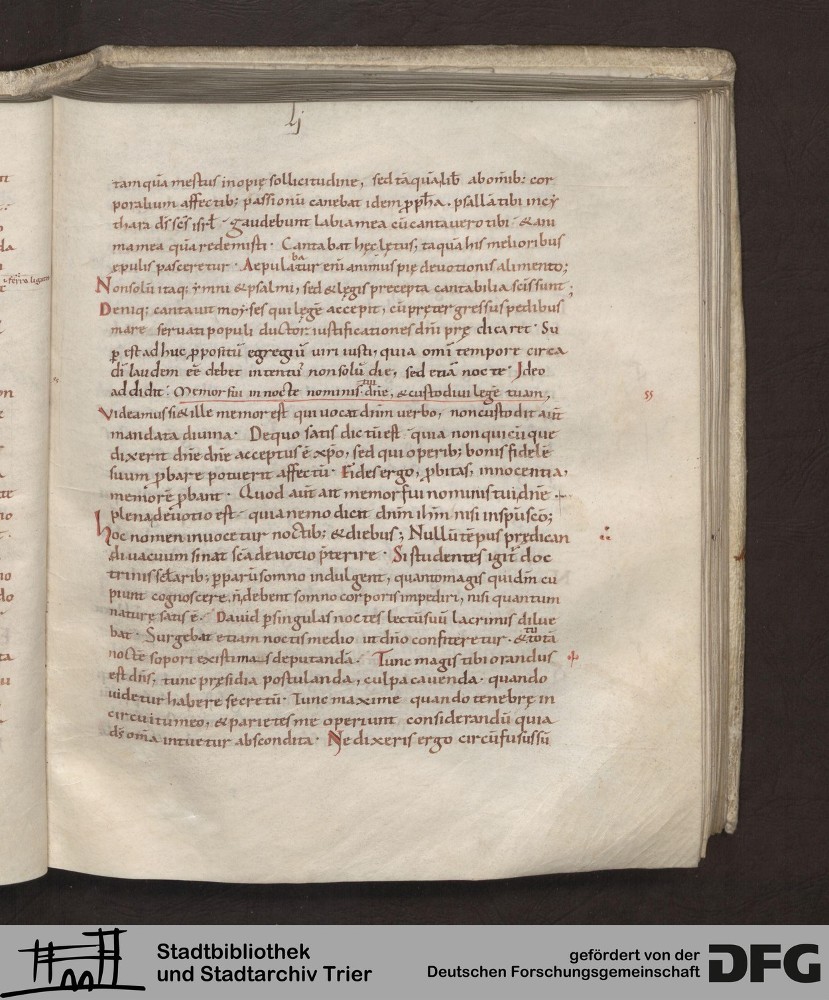 lj
tamquā mestus inopię sollicitudine, sed tāquā lib abomib: cor
poralium affectib; passionū canebat idem ꝓpħa. psallā tibi in cy
thara dꝰ scꝰ isrł · gaudebunt labia mea cū cantavero tibi · & ani
ma mea quā redemisti · Cantabat hęc lętus, tāquā his melioribus
epulis pasceretur · Aepulabatur eni animus pię devotionis alimento;
Non solū itaq; ymni & psalmi, sed & legis precepta cantabilia sc̄is sunt;
Deniq; cantauit moyses qui legē accepit, cū prętergressus pedibus
mare servati populi ductor iustificationes dn̄i prędicaret · Su
ꝑ est adhuc ꝓpositū egregiū uiri iusti, quia omī tempore circa
dī laudem eē debet intentus non solū die, sed etiā nocte · Ideo
addidit · Memor fui in nocte nominis tui dn̄e, & custodivi legē tuam,
55
Videamus si & ille memor est qui vocat dn̄m verbo, non custodit aut̄
mandata divina · De quo satis dictū est quia non quicūque
dixerit dn̄e dn̄e acceptus ē xp̄o, sed qui operib; bonis fidelē
suum ꝓbare potuerit affectū · Fides ergo, ꝓbitas, innocentia,
memorē ꝓbant · Quod aut̄ ait memor fui nominis tui dn̄e
plena devotio est · quia nemo dicit dn̄m ih̄m nisi in sp̄u sc̄o;
hoc nomen invocetur noctib; & diebus; Nullū tēpus prędican
di vacuum sinat sc̄a devotio p̄terire · Si studentes igit̄ doc
trinis sclarib; ꝑparū somno indulgent, quanto magis qui dm̄ cu
piunt cognoscere, n̄ debent somno corporis impediri, nisi quantum
naturę satis ē · David ꝑ singulas noctes lectū suū lacrimis dilue
bat · Surgebat etiam noctis medio ut dn̄o confiteretur · & tu totā
noctē sopori existimas deputandā · Tunc magis tibi orandus
est dn̄s, tunc pręsidia postulanda, culpa cavenda · quando
uidetur habere secretū · Tunc maxime quando tenebrę in
circuitu meo, & parietes me operiunt considerandū quia
dꝰ om̄a intuetur abscondita · Ne dixeris ergo circūfusus sū
Stadtbibliothek
und Stadtarchiv Trier
gefördert von der
Deutschen Forschungsgemeinschaft
DFG